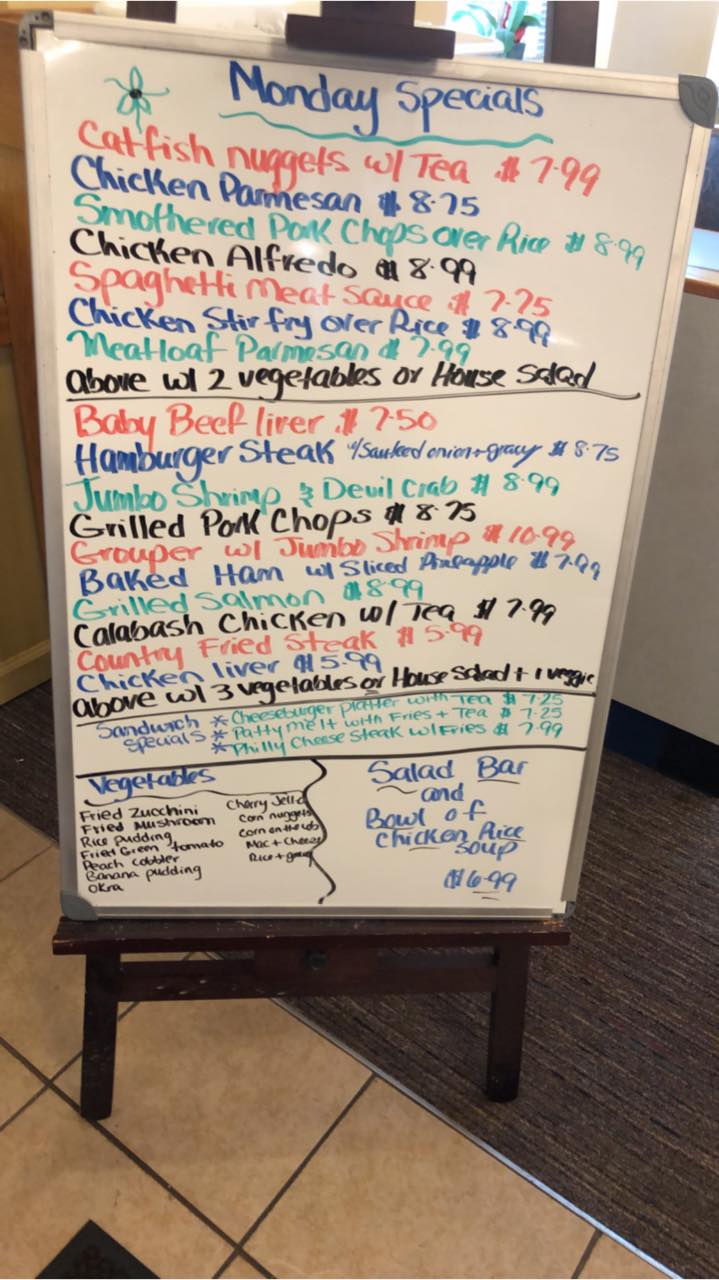 Monday Specials
Catfish nuggets w/ Tea $ 7.99
Chicken Parmesan $ 8.75
Smothered Pork Chops over Rice $ 8.99
Chicken Alfredo $ 8.99
Spaghetti Meat Sauce $ 7.75
Chicken Stir fry over Rice $ 8.99
Meatloaf Parmesan $ 7.99
above w/ 2 vegetables or House Salad
Baby Beef liver $ 7.50
Hamburger Steak w/Sauteed onion + gravy $ 8.75
Jumbo Shrimp & Devil Crab $ 8.99
Grilled Pork Chops $ 8.75
Grouper w/ Jumbo Shrimp $ 10.99
Baked Ham w/ Sliced Pineapple $ 7.99
Grilled Salmon $8.99
Calabash Chicken w/ Tea $ 7.99
Country Fried Steak $ 5.99
Chicken liver $ 5.99
above w/ 3 vegetables or House Salad + 1 veggie
Sandwich specials
* Cheeseburger platter with Tea $ 7.25
* Patty melt with Fries + Tea $ 7.25
* Philly Cheese Steak w/ Fries $ 7.99
Vegetables
Fried Zucchini
Fried Mushroom
Rice pudding
Fried Green tomato
Peach cobbler
Banana pudding
Okra
Cherry Jello
Corn nuggets
Corn on the cob
Mac + Cheese
Rice + gravy
Salad Bar
and
Bowl of
Chicken Rice
Soup
$6.99